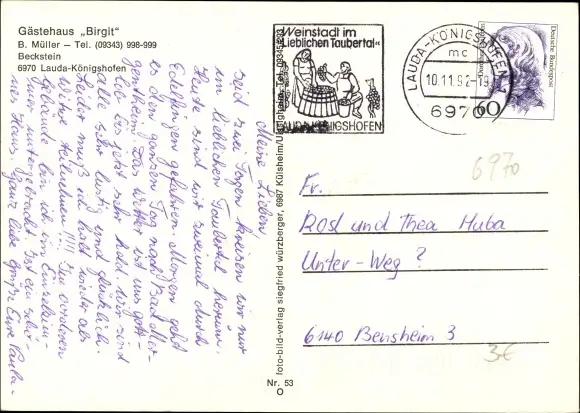 Gästehaus „Birgit"
B. Müller – Tel. (09343) 998-999
Beckstein
6970 Lauda-Königshofen
Weinstadt im
Lieblichen Taubertal
LAUDA-KÖNIGSHOFEN
LAUDA-KÖNIGSHOFEN 1
mc
10.11.92-19
6970
Deutsche Bundespost
60
Meine Lieben!
Seid zwei Tagen kreisen wir nur
im lieblichen Taubertal herum.
Heute sind wir zweimal durch
Edelfingen gefahren. Morgen geht
es den ganzen Tag nach Bad Mer-
gentheim. Das Wetter ist uns gut-
lich bis jetzt sehr hold. Wir sind
alle sehr lustig und glücklich.
Leider muß ich bald wieder als
heimfahren!!!! Im vorderen
Gebäude bin ich im Einzelzim-
mer untergebracht. Ist ein schö-
nes Haus. Ganz liebe Grüße Eure Paula.
foto-bild-verlag siegfried würzberger, 6987 Külsheim/Uissigheim, Tel. 09345/293
Nr. 53
O
6970
Fr.
Rosl und Thea Huba
Unter-Weg ?
6140 Bensheim 3
3€